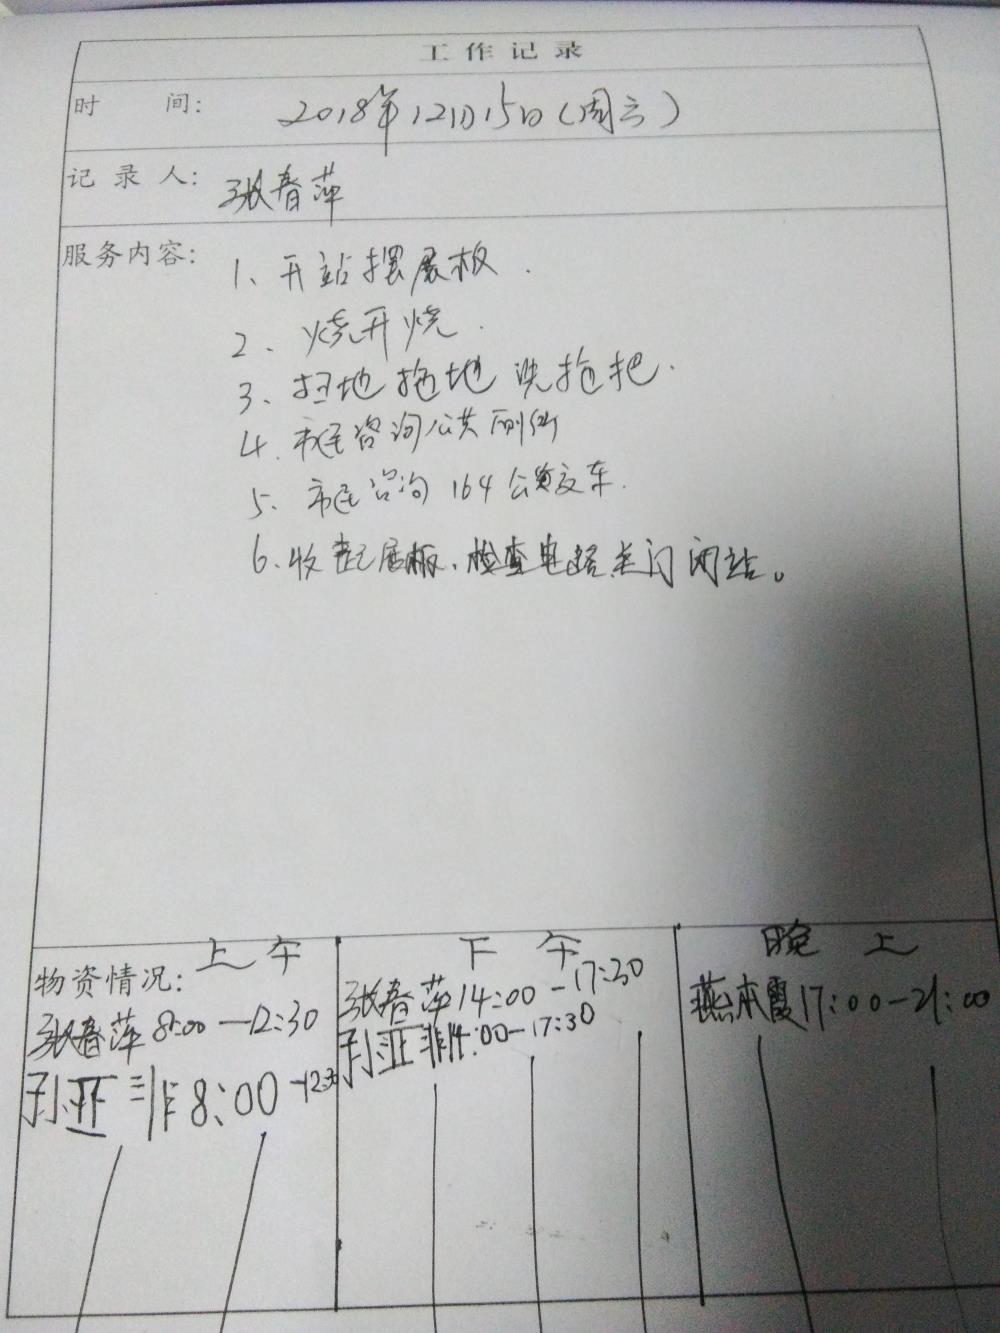 工作记录
时 间: 2018年12月15日(周六)
记录人: 张春萍
服务内容: 1、开站摆展板.
2、烧开烧.
3、扫地拖地洗拖把.
4、市民咨询公共厕所
5、市民咨询164公交车.
6、收起展板、检查电路关门闭站。
物资情况: 上午
张春萍8:00—12:30
孙亚非8:00—12:30
下午
张春萍14:00-17:30
孙亚非14:00-17:30
晚上
燕本霞17:00-21:00